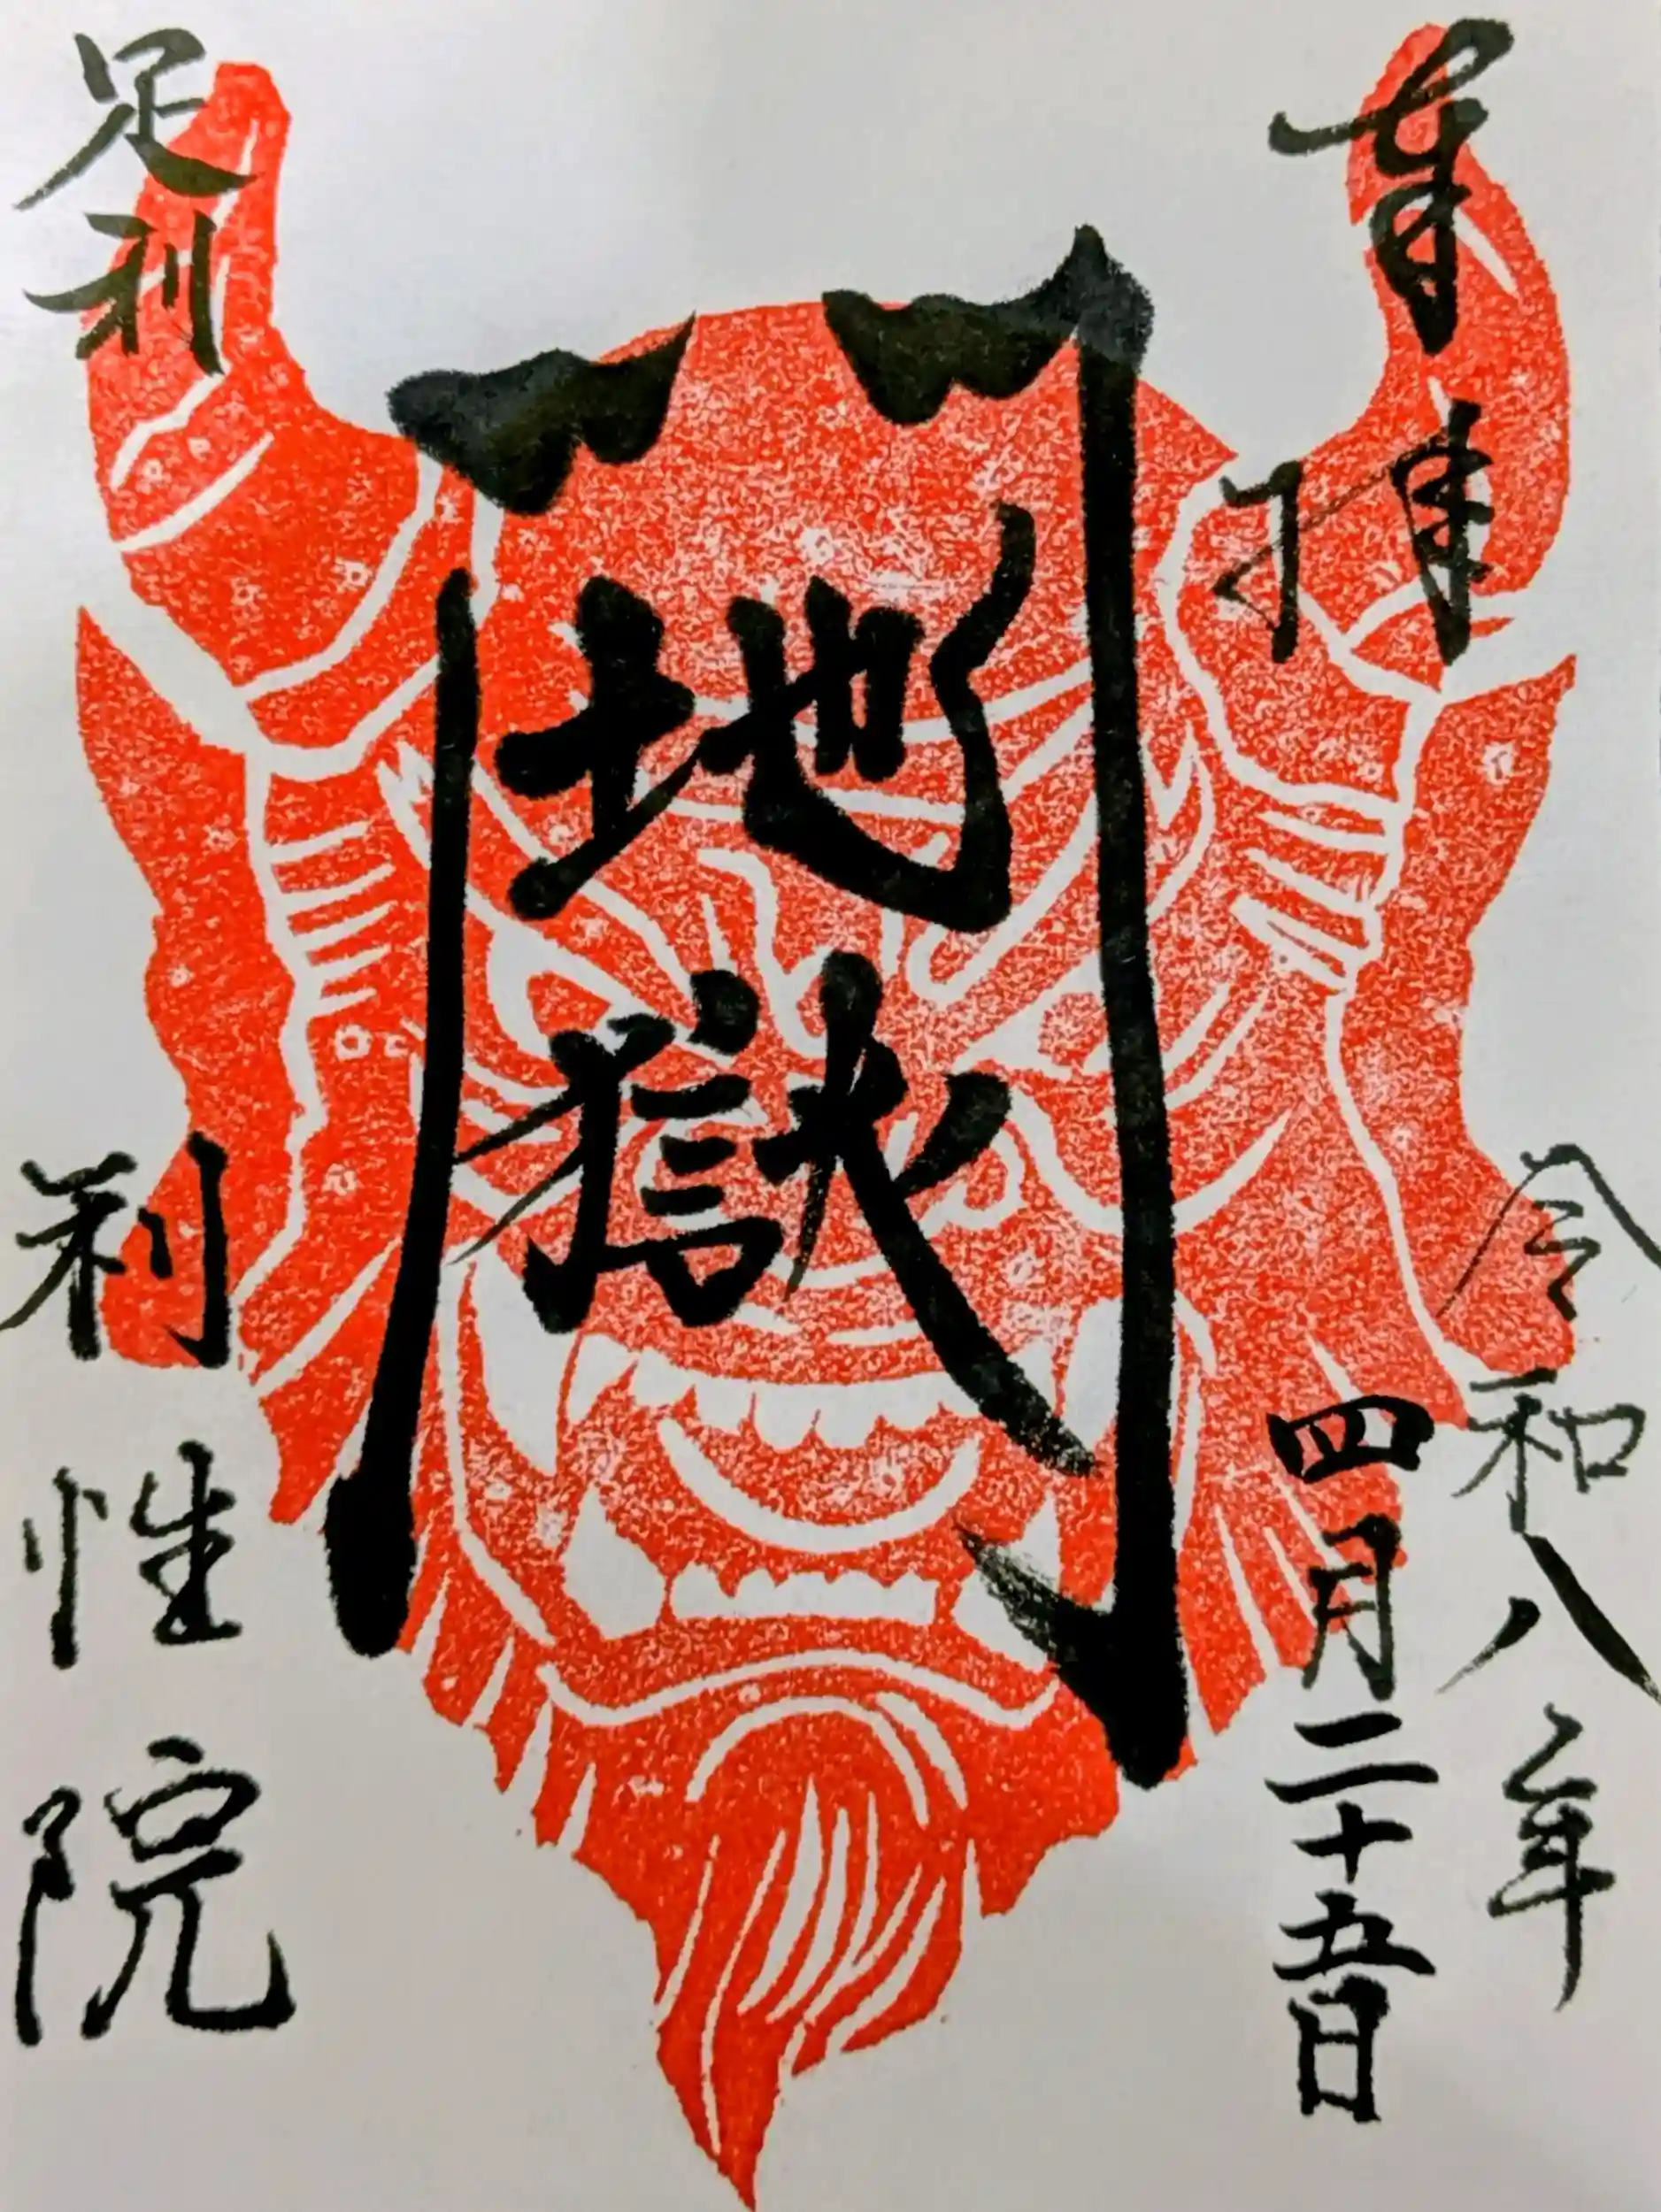 奉拝
令和八年
四月二十五日
地獄門
足利
利性院